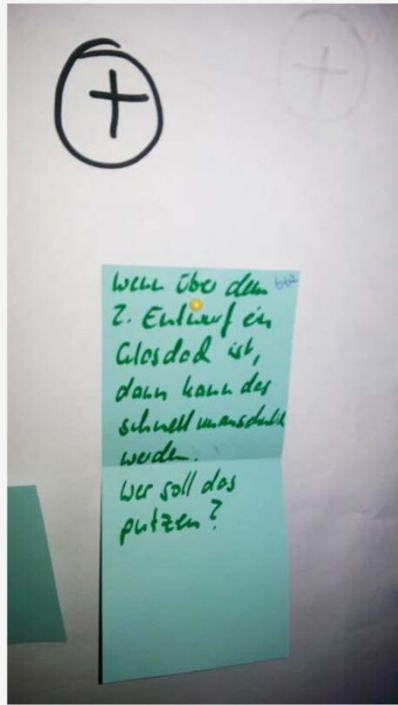 +
wenn über dem
2. Entwurf ein
Glasdach ist,
dann kann das
schnell unansehnlich
werden.
Wer soll das
putzen?